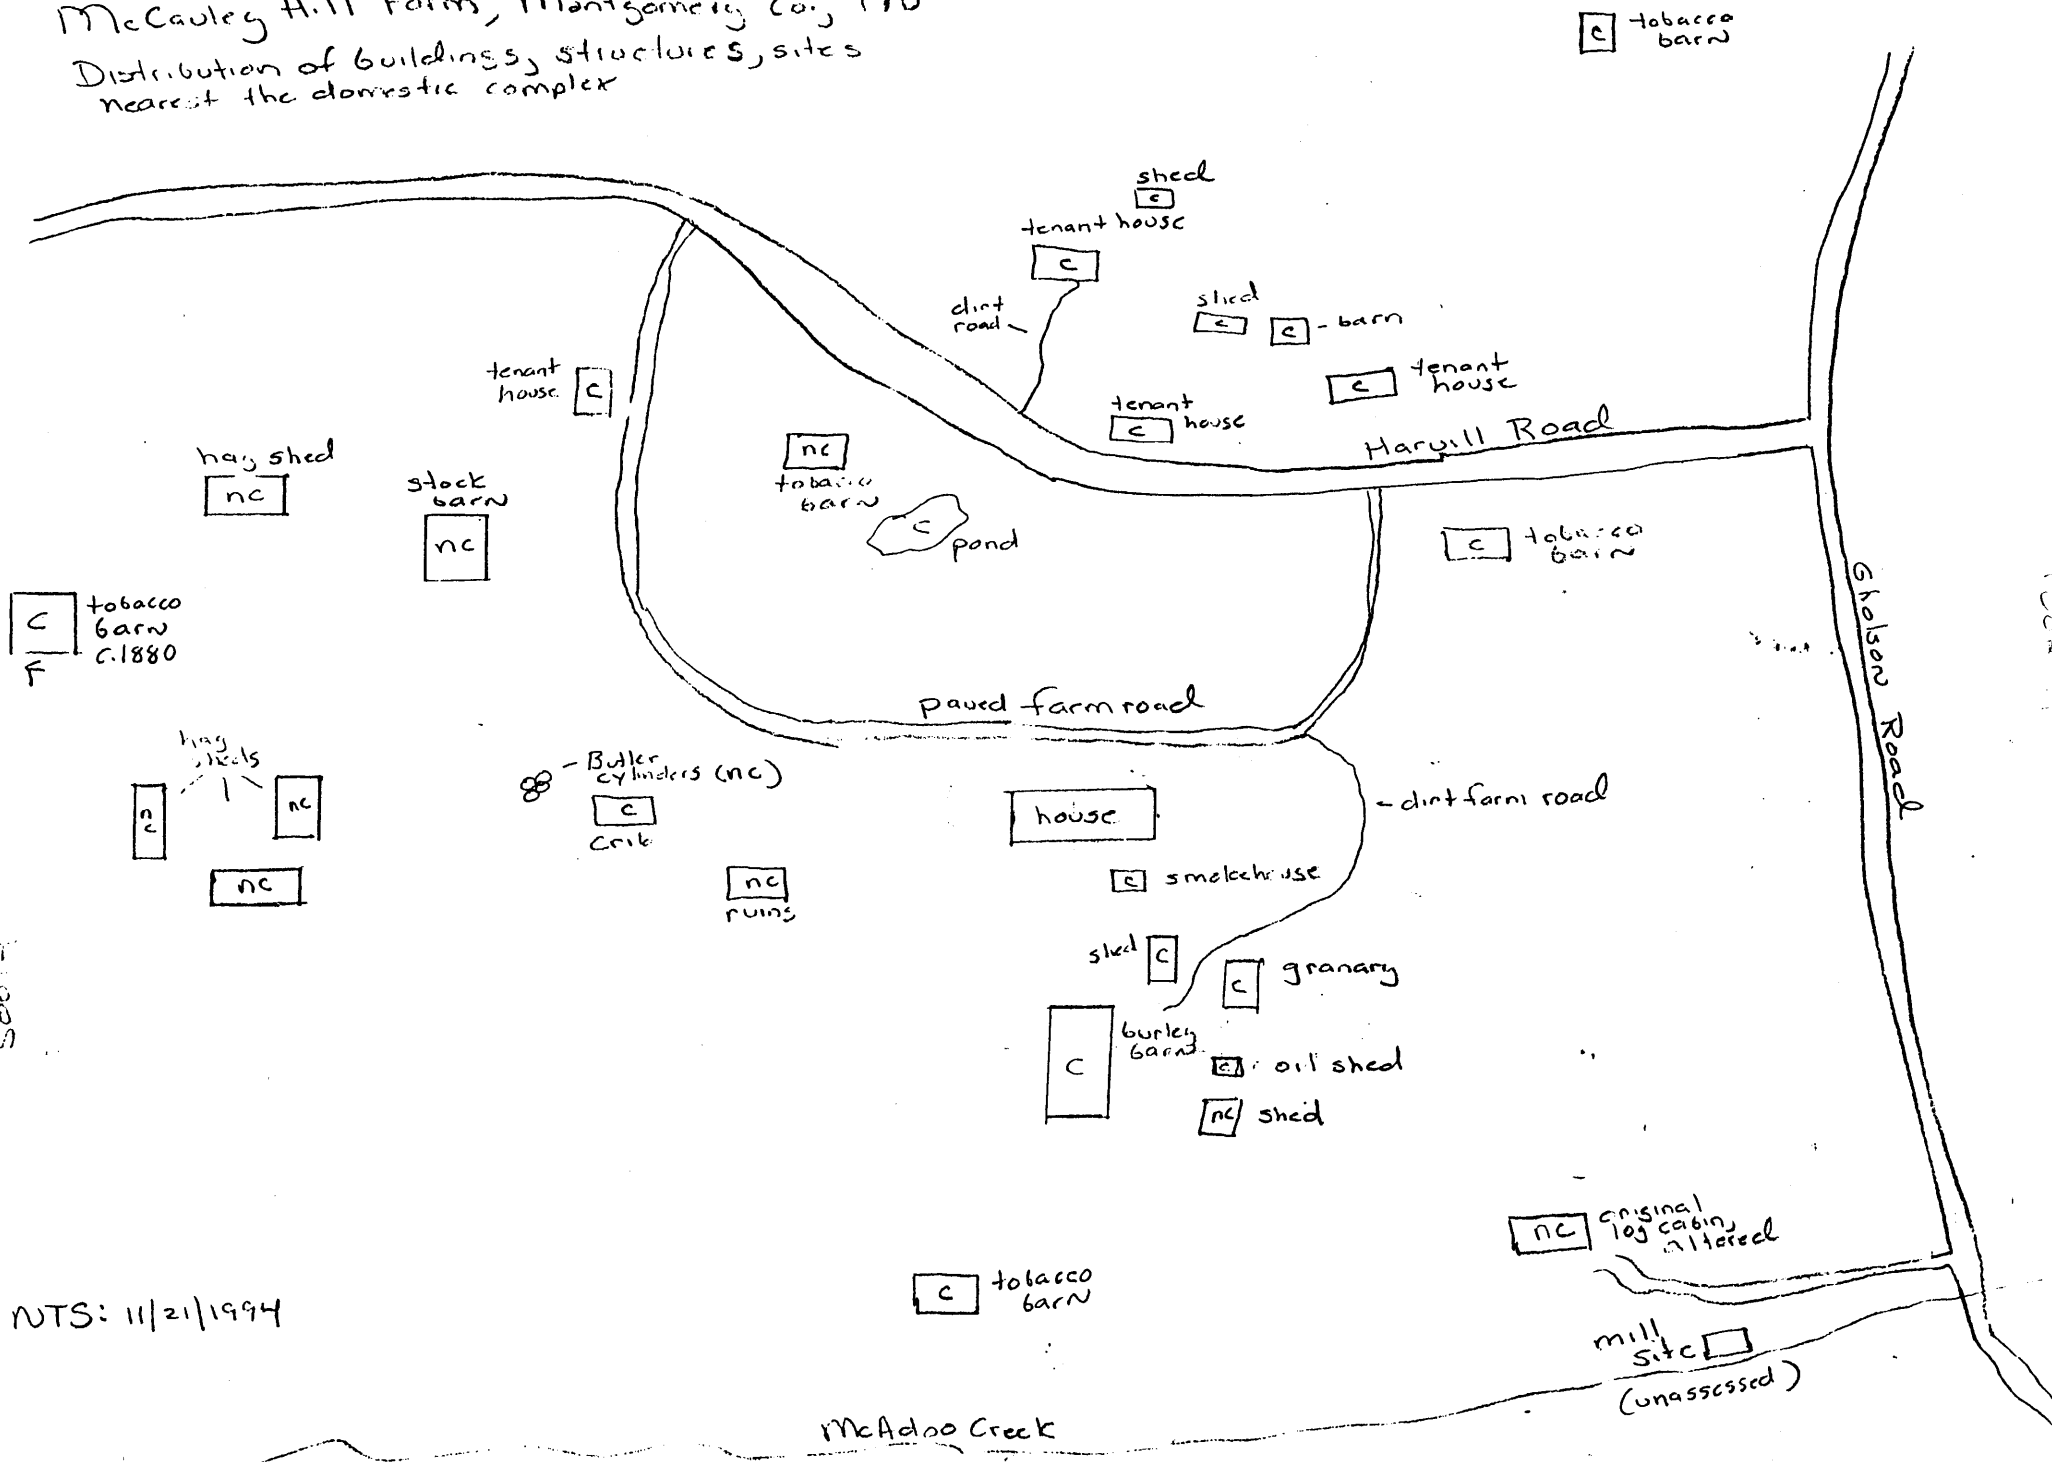 McCauley Hill Farm, Montgomery Co., TN
Distribution of buildings, structures, sites
nearest the domestic complex
c tobacco
barn
shed
c
tenant house
c
dirt
road
shed
c
c - barn
tenant
house
c
c tenant
house
tenant
c house
Harvill Road
hay shed
nc
stock
barn
nc
nc
tobacco
barn
c
pond
c tobacco
barn
Gholson Road
C tobacco
barn
c.1880
F
paved farm road
hay
sheds
nc
nc
nc
- Butler
cylinders (nc)
c
crib
nc
ruins
house
- dirt farm road
c smokehouse
shed c
c granary
burley
barn
C
c oil shed
nc shed
nc original
log cabin,
altered
c tobacco
barn
NTS: 11/21/1994
mill
site
(unassessed)
McAdoo Creek